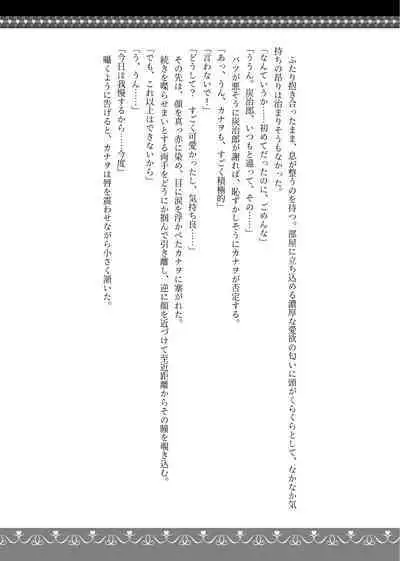 ふたり抱き合ったまま、息が整うのを待つ。部屋に立ち込める濃厚な愛欲の匂いに頭がくらくらとして、なかなか気
持ちの昂りは治まりそうもなかった。
「なんていうか……初めてだったのに、ごめんな」
「ううん。炭治郎、いつもと違って、その……」
バツが悪そうに炭治郎が謝れば、恥ずかしそうにカナヲが否定する。
「あっ、うん。カナヲも、すごく積極的」
「言わないで！」
「どうして？　すごく可愛かったし、気持ち良……」
その先は、顔を真っ赤に染め、目に涙を浮かべたカナヲに塞がれた。
続きを喋らせまいとする両手をどうにか掴んで引き離し、逆に顔を近づけて至近距離からその瞳を覗き込む。
「でも、これ以上はできないから」
「う、うん……」
「今日は我慢するから……今度」
囁くように告げると、カナヲは唇を震わせながら小さく頷いた。